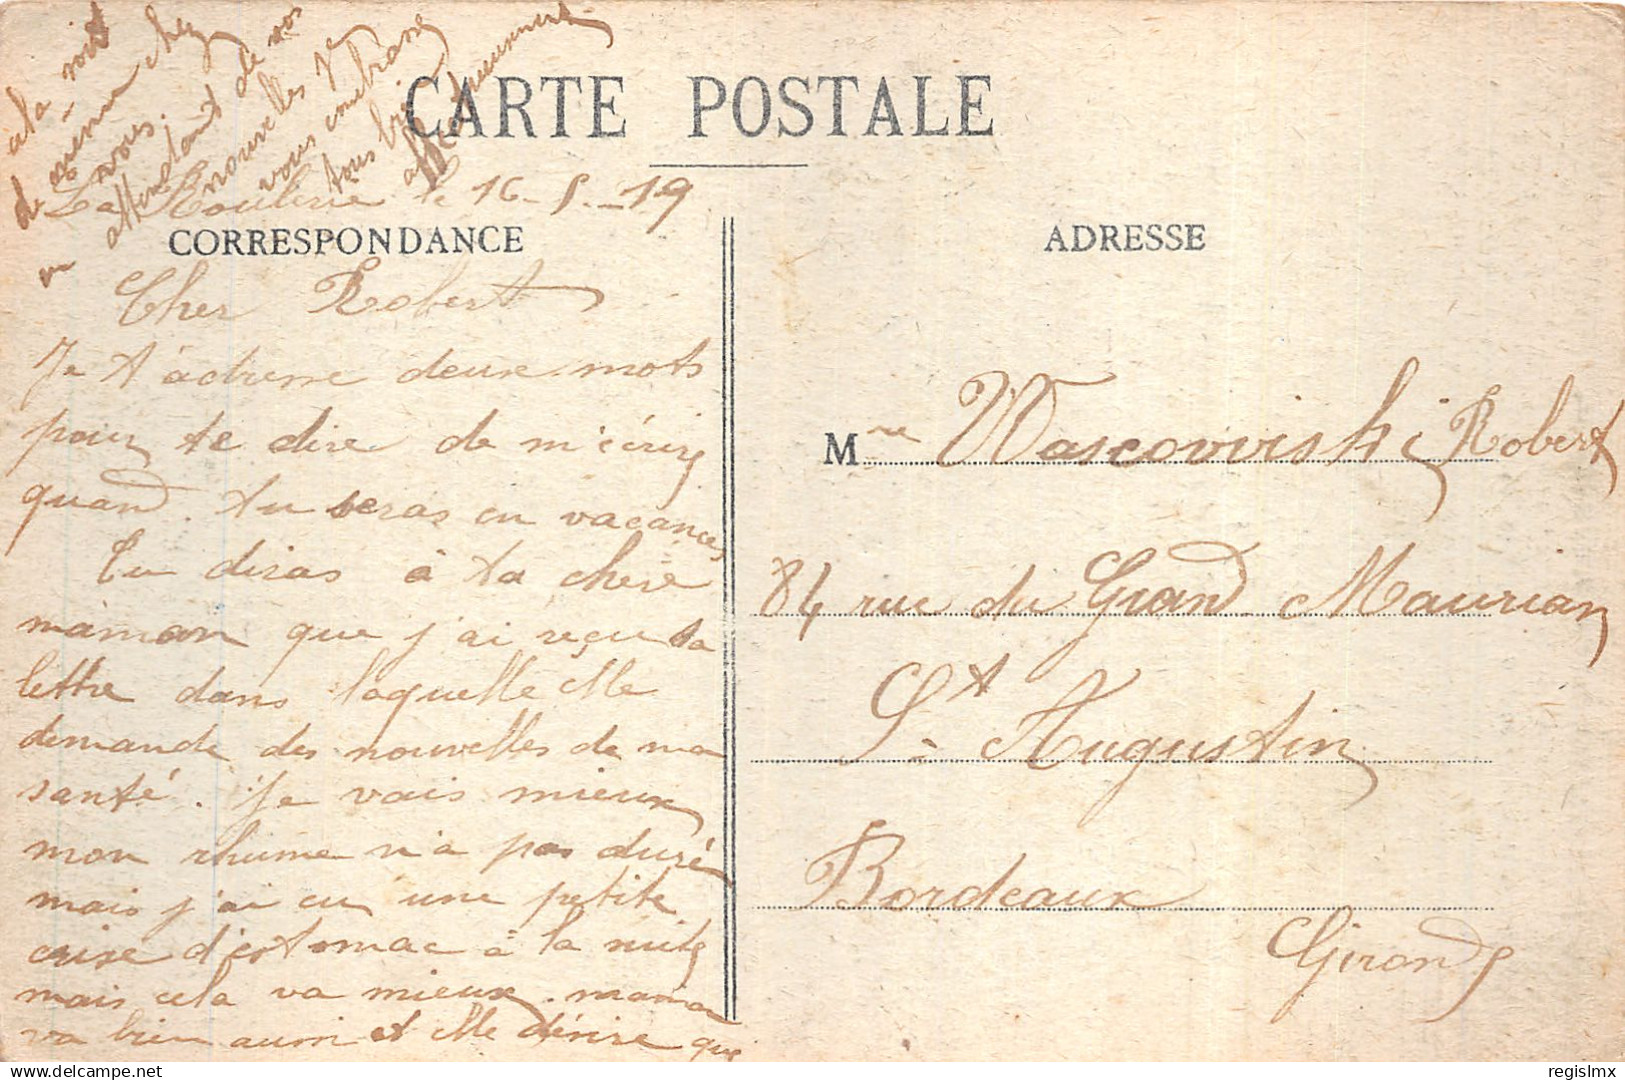 CARTE POSTALE
La Roulerie le 16-5-19
CORRESPONDANCE
Cher Robert
Je t'adresse deux mots
pour te dire de m'écrire
quand tu seras en vacances
Tu diras à ta chère
maman que j'ai reçu sa
lettre dans laquelle elle
demande des nouvelles de ma
santé. Je vais mieux
mon rhume n'a pas duré
mais j'ai eu une petite
crise d'estomac à la nuit
mais cela va mieux. maman
va bien aussi et elle désire que
cela soit
de même chez
vous.
en attendant de vos
nouvelles Je
vous embrasse
tous bien
affectueusement
ADRESSE
Mre Wascowiski Robert
84 rue du Grand Maurian
St Augustin
Bordeaux
Gironde
regislmx